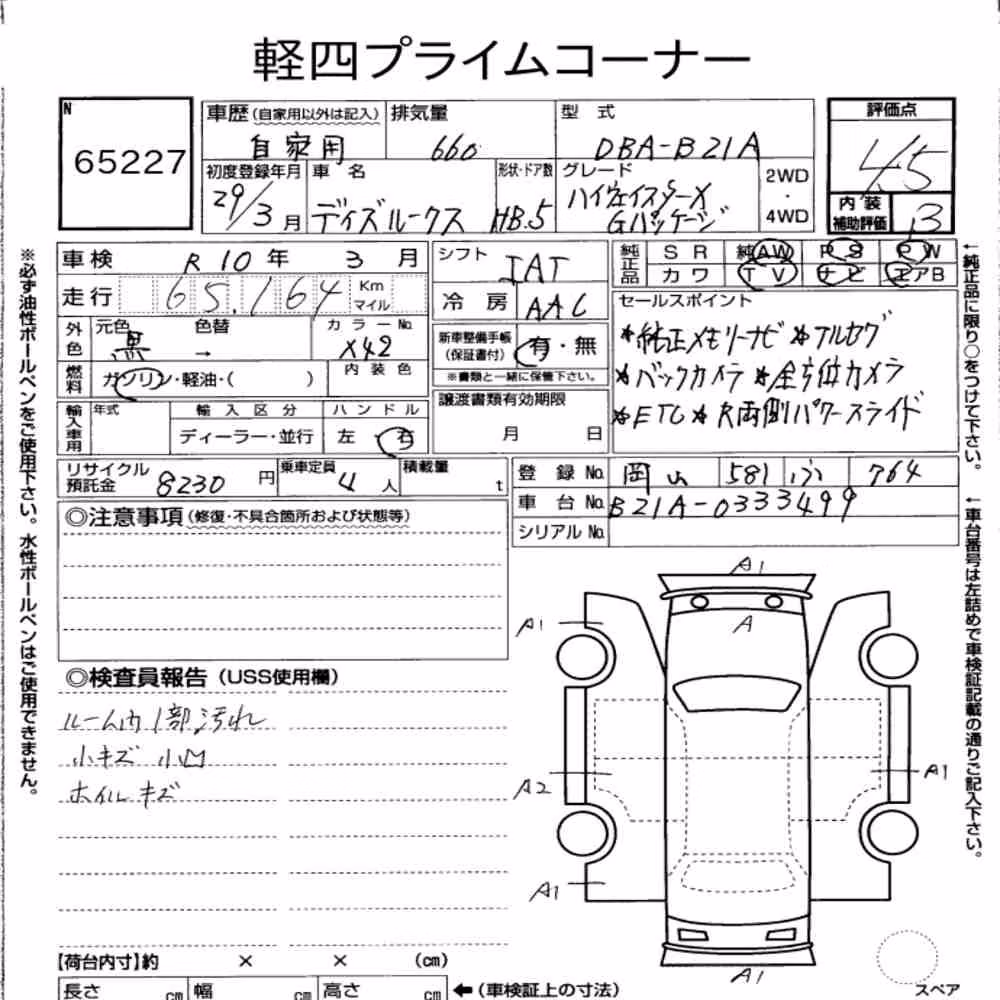 軽四プライムコーナー
N
65227
車歴(自家用以外は記入)
自家用
排気量
660
型 式
DBA-B21A
評価点
4.5
初度登録年月
29/3月
車 名
デイズルークス
形状・ドア数
HB.5
グレード
ハイウェイスターX
Gパッケージ
2WD
・
4WD
内 装
補助評価
B
車検 R10年 3月
シフト
IAT
純正品
SR 純AW PS PW
カワ TV ナビ エアB
走行
65,164
Km
マイル
冷 房
AAC
セールスポイント
*純正メモリーナビ *アルセグ
*バックカメラ *全方位カメラ
*ETC* R両側パワースライド
外色
元色
黒
色替
→
カラーNo.
X42
新車整備手帳
(保証書付)
有・無
※書類と一緒に保管下さい。
燃料
ガソリン・軽油・( )
内 装 色
譲渡書類有効期限
月 日
輸入車用
年式
輸 入 区 分
ディーラー・並行
ハ ン ド ル
左・右
リサイクル
預託金
8230円
乗車定員
4人
積載量
t
登 録 No. 岡山 581 ふ 764
車 台 No. B21A-0333499
シリアル No.
◎注意事項(修復・不具合箇所および状態等)
◎検査員報告(USS使用欄)
ルーム内1部汚れ
小キズ 小凹
ホイルキズ
A1
A1
A
A2
A1
A1
A1
【荷台内寸】約 × × (cm)
長さ cm 幅 cm 高さ cm
←(車検証上の寸法)
スペア
※必ず油性ボールペンをご使用下さい。水性ボールペンはご使用できません。
←純正品に限り○をつけて下さい。
←車台番号は左詰めで車検証記載の通りご記入下さい。